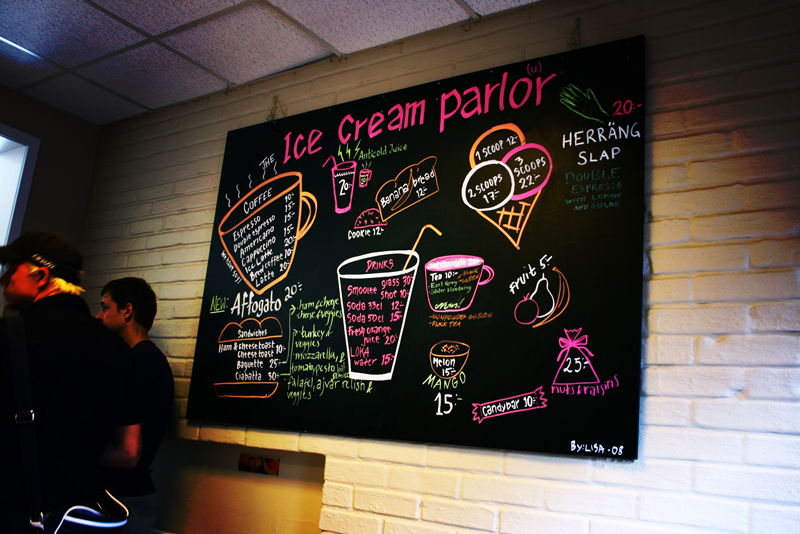 Ice Cream parlor
(u)
THE
COFFEE
Espresso 10:-
Double espresso 15:-
Americano 15:-
Cappuccino 15:-
Ice Latte 20:-
Brew coffee 10:-
Latte 20:-
Anticold Juice
20:-
Banana bread
12:-
COOKIE 12:-
1 SCOOP 12:-
2 SCOOPS
17:-
3 SCOOPS
22:-
20:-
HERRÄNG
SLAP
DOUBLE
ESPRESSO
WITH LEMON
AND SUGAR
NEW: Affogato 20:-
Sandwiches
Ham & cheese toast
Cheese toast 10:-
Baguette 25:-
Ciabatta 30:-
ham & cheese
cheese & veggies
turkey &
veggies
mozzarella &
tomato, pesto
falafel, ajvar relish &
veggies
DRINKS
Smootie glass 30
shot 10:-
soda 33cl 12:-
soda 50cl 15:-
Fresh orange
juice 20:-
LOKA
water 15:-
Tea 10:-
Earl Grey
Söder blandning
GUNPOWDER GREEN
BLACK TEA
Fruit 5:-
Melon
15:-
MANGO
15:-
Candybar 10:-
25:-
nuts & raisins
By: LISA -08